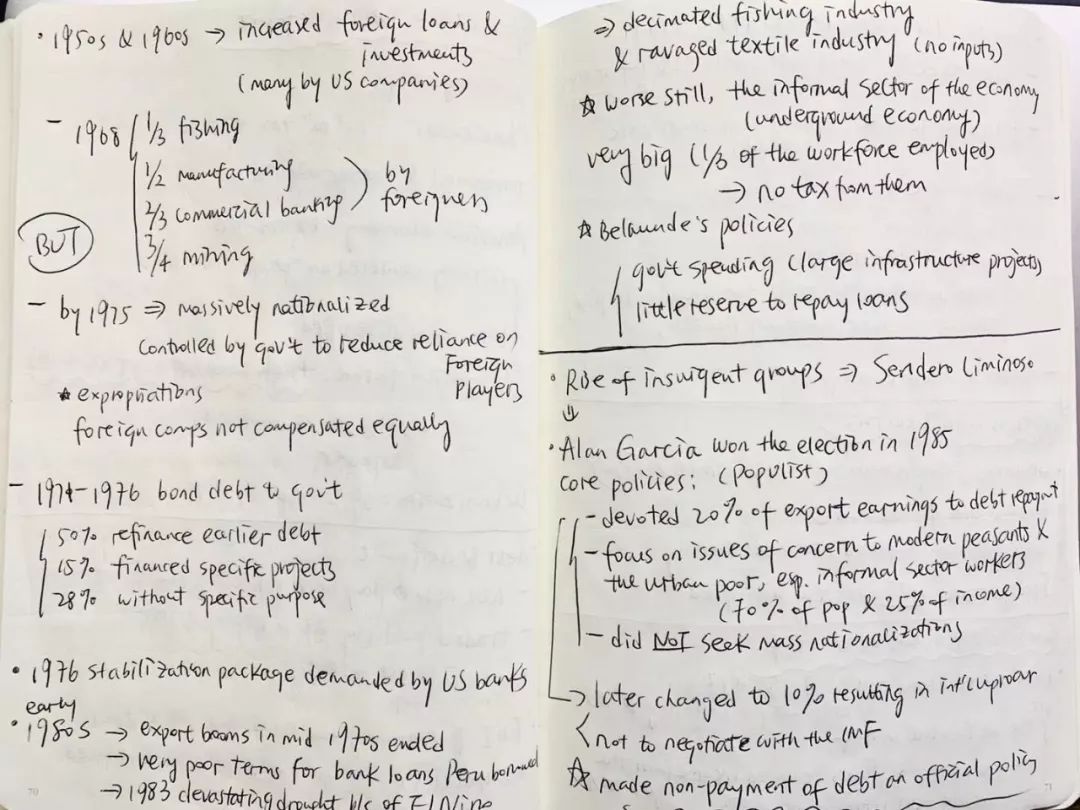 • 1950s & 1960s → increased foreign loans &
investments
(many by US companies)
- 1968 1/3 fishing
1/2 manufacturing
2/3 commercial banking
3/4 mining
by
foreigners
BUT
- by 1975 ⇒ massively nationalized
controlled by gov't to reduce reliance on
Foreign
Players
☆ expropriations
foreign comps not compensated equally
- 1974-1976 bond debt to gov't
50% refinance earlier debt
15% financed specific projects
28% without specific purpose
• 1976 stabilization package demanded by US banks
early
• 1980s → export booms in mid 1970s ended
→ very poor terms for bank loans Peru borrowed
→ 1983 devastating drought b/c of El Nino
70
⇒ decimated fishing industry
& ravaged textile industry (no inputs)
☆ worse still, the informal sector of the economy
(underground economy)
very big (1/3 of the workforce employed)
→ no tax from them
☆ Belaunde's policies
gov't spending (large infrastructure projects)
little reserve to repay loans
• Rise of insurgent groups ⇒ Sendero Liminoso
⇓
• Alan Garcia won the election in 1985
core policies: (populist)
- devoted 20% of export earnings to debt repaymt
- focus on issues of concern to modern peasants &
the urban poor, esp. informal sector workers
(70% of pop & 25% of income)
- did NOT seek mass nationalizations
→ later changed to 10% resulting in int'l uproar
not to negotiate with the IMF
☆ made non-payment of debt an official policy
71